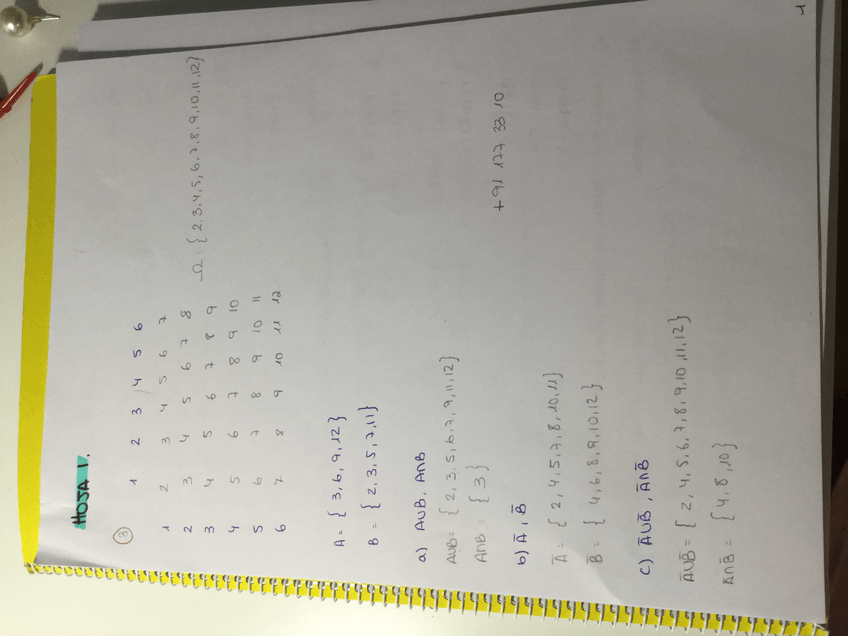 HOJA 1.
③ 1 2 3 4 5 6
1 2 3 4 5 6 7
2 3 4 5 6 7 8
3 4 5 6 7 8 9
4 5 6 7 8 9 10
5 6 7 8 9 10 11
6 7 8 9 10 11 12
Ω = {2,3,4,5,6,7,8,9,10,11,12}
A = {3,6,9,12}
B = {2,3,5,7,11}
a) A∪B, A∩B
A∪B = {2,3,5,6,7,9,11,12}
A∩B = {3}
+91 177 33 10
b) A̅, B̅
A̅ = {2,4,5,7,8,10,11}
B̅ = {4,6,8,9,10,12}
c) A̅∪B̅, A̅∩B̅
A̅∪B̅ = {2,4,5,6,7,8,9,10,11,12}
A̅∩B̅ = {4,8,10}
1